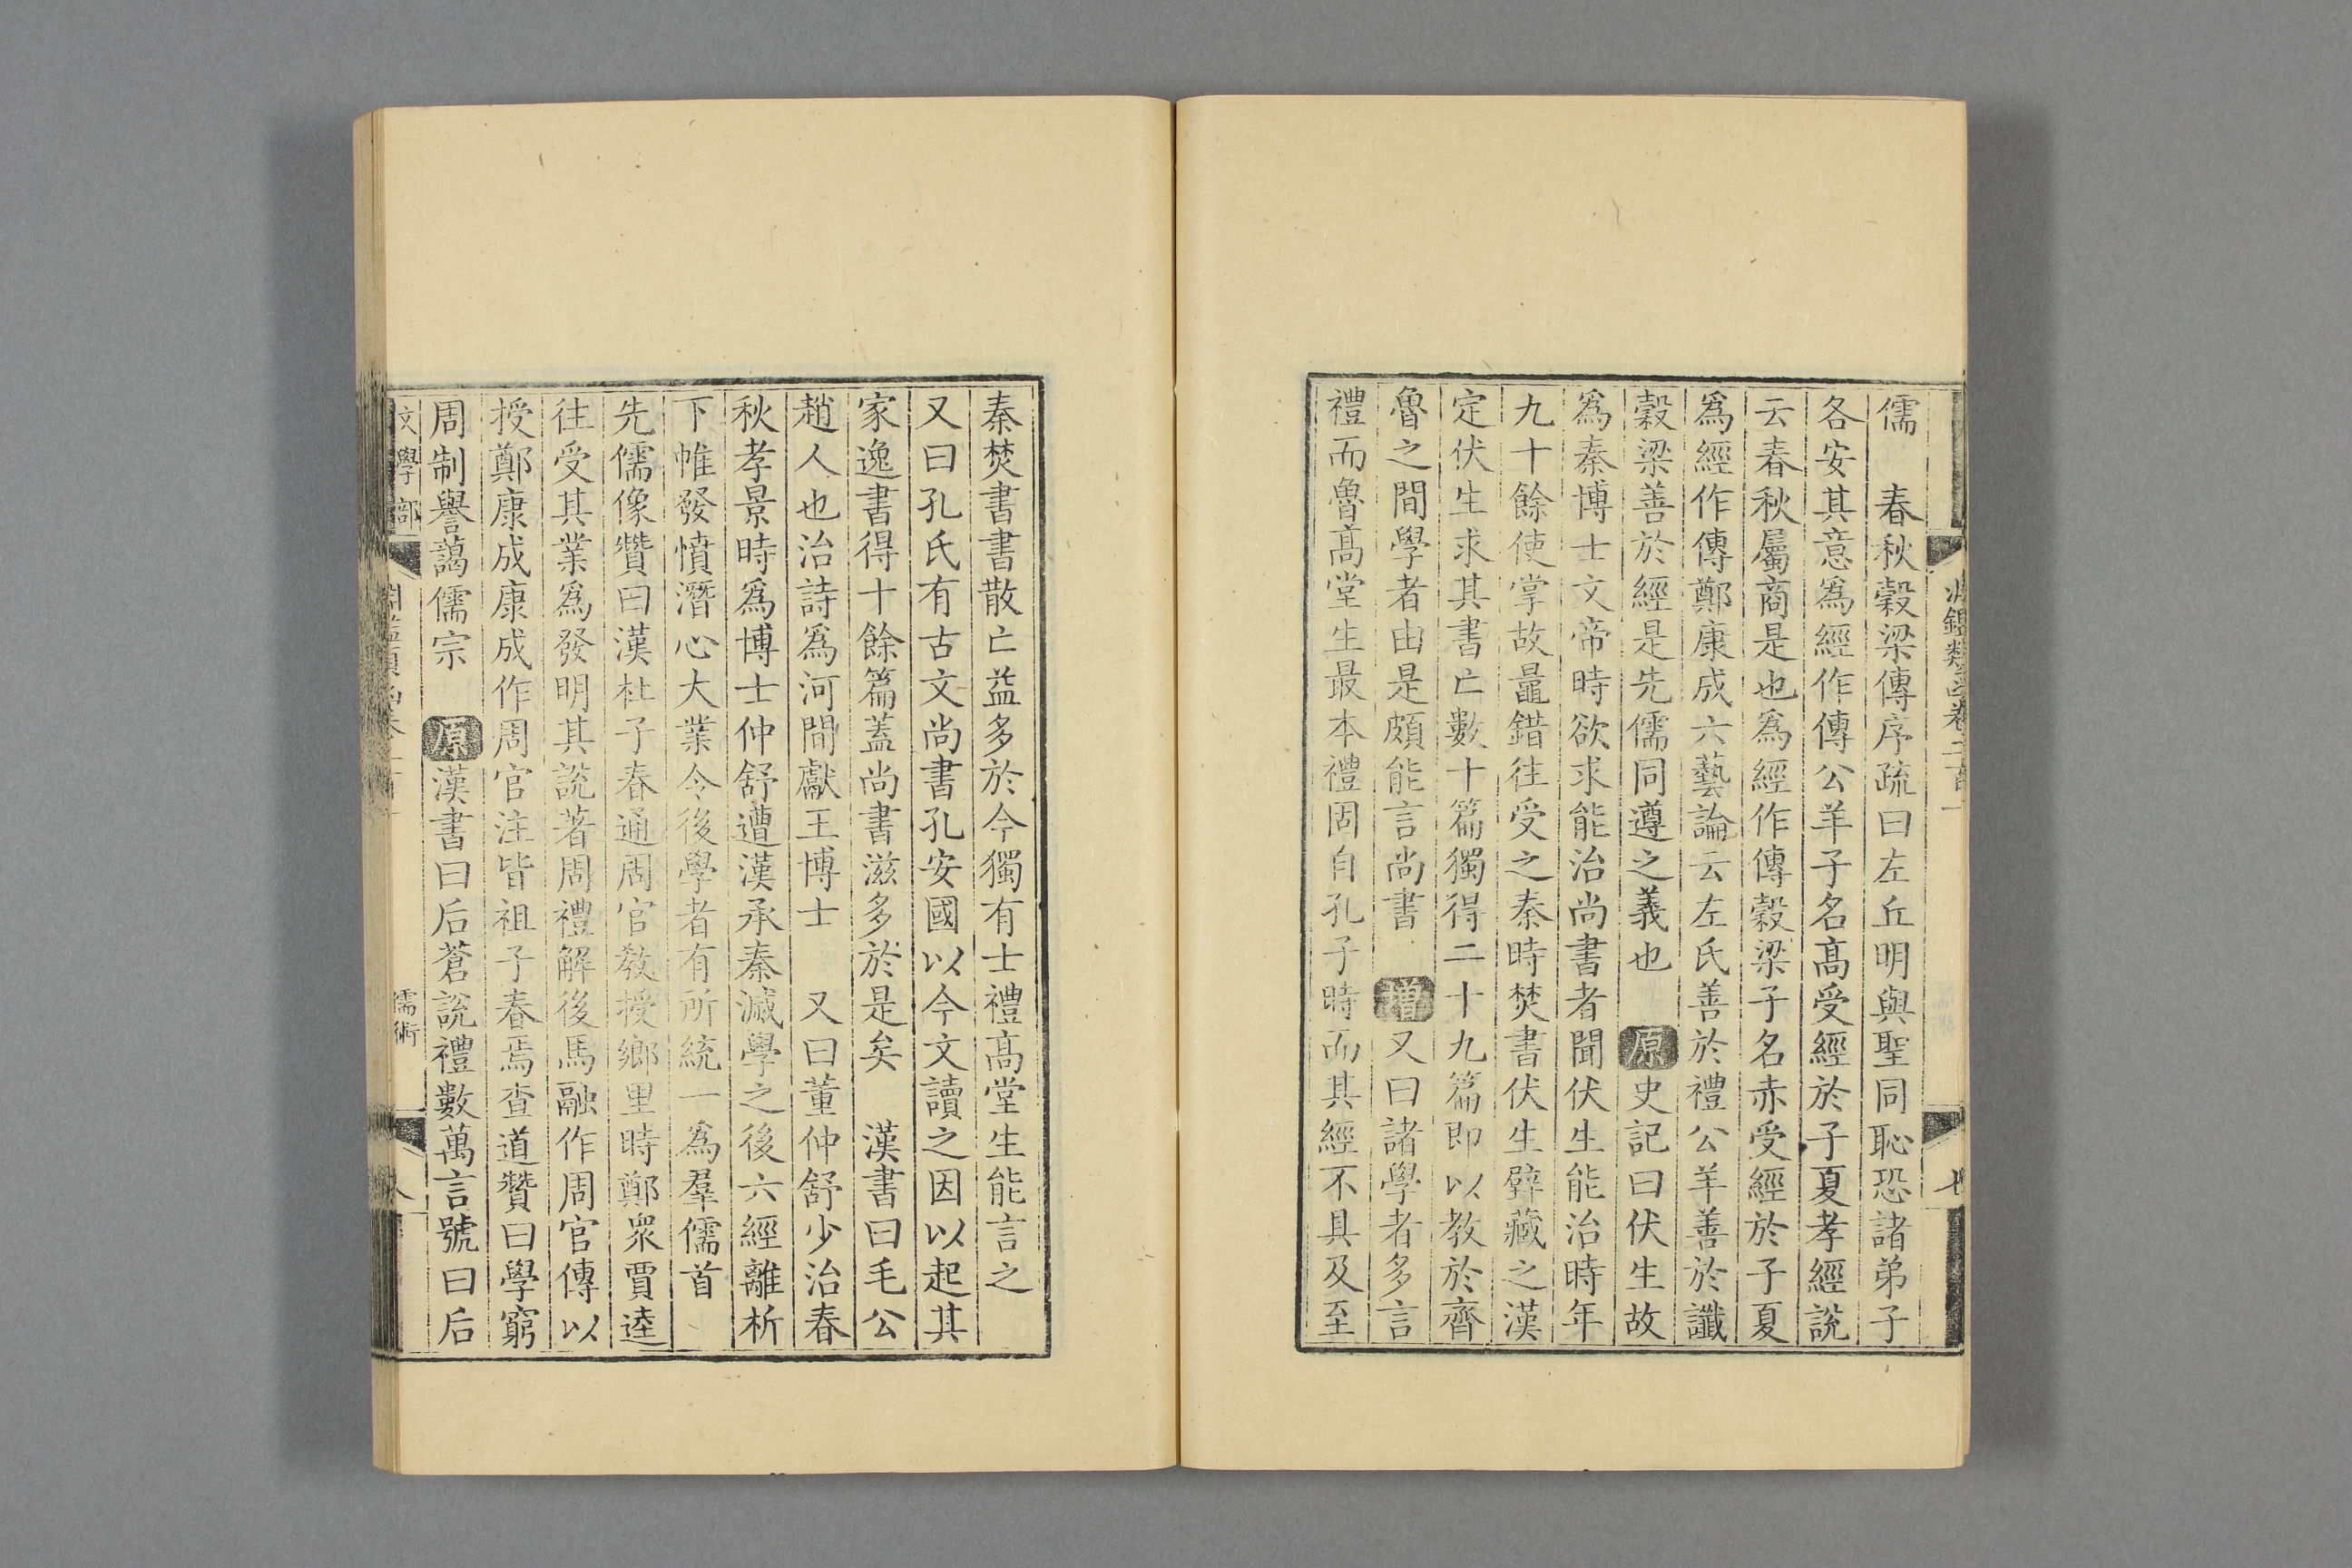 儒　春秋穀梁傳序疏曰左丘明與聖同恥恐諸弟子
各安其意爲經作傳公羊子名高受經於子夏孝經說
云春秋屬商是也爲經作傳穀梁子名赤受經於子夏
爲經作傳鄭康成六藝論云左氏善於禮公羊善於讖
穀梁善於經是先儒同遵之義也　原史記曰伏生故
爲秦博士文帝時欲求能治尚書者聞伏生能治時年
九十餘使掌故鼂錯往受之秦時焚書伏生壁藏之漢
定伏生求其書亡數十篇獨得二十九篇即以教於齊
魯之間學者由是頗能言尚書　增又曰諸學者多言
禮而魯高堂生最本禮固自孔子時而其經不具及至
秦焚書書散亡益多於今獨有士禮高堂生能言之
又曰孔氏有古文尚書孔安國以今文讀之因以起其
家逸書得十餘篇蓋尚書滋多於是矣　漢書曰毛公
趙人也治詩爲河間獻王博士　又曰董仲舒少治春
秋孝景時爲博士仲舒遭漢承秦滅學之後六經離析
下帷發憤潛心大業令後學者有所統一爲羣儒首
先儒像贊曰漢杜子春通周官教授鄉里時鄭眾賈逵
往受其業爲發明其說著周禮解後馬融作周官傳以
授鄭康成康成作周官注皆祖子春焉查道贊曰學窮
周制譽藹儒宗　原漢書曰后蒼說禮數萬言號曰后
文學部
儒術